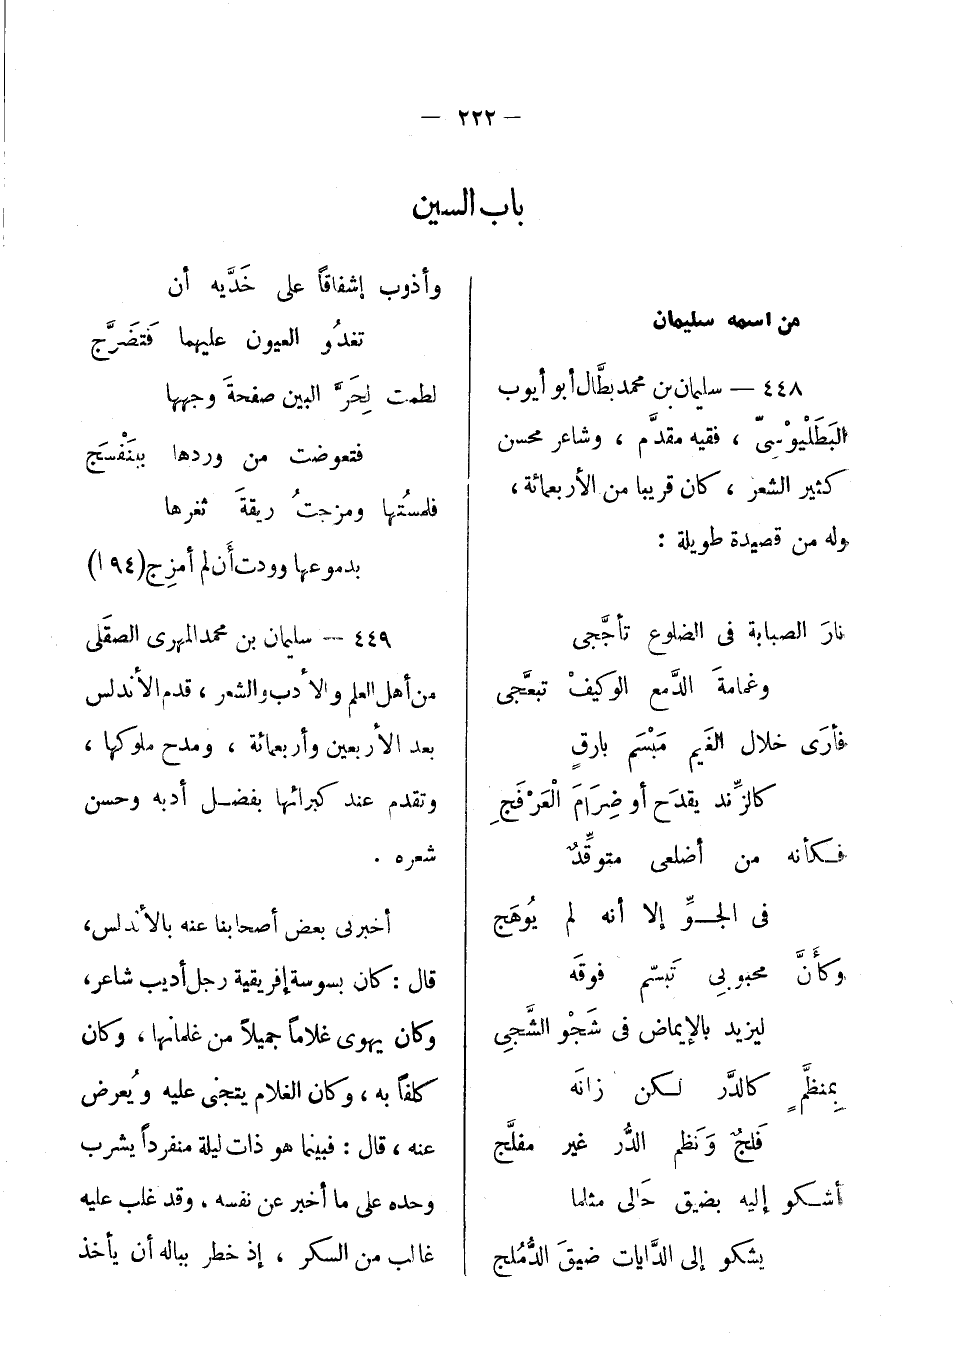 — ٢٢٢ —
باب السين
من اسمه سليمان
٤٤٨ — سليمان بن محمد بطَّال أبو أيوب
البَطَلْيوْسِىّ ، فقيه مقدَّم ، وشاعر محسن
كثير الشعر ، كان قريبا من الأربعمائة ،
وله من قصيدة طويلة :
نارَ الصبابة فى الضلوع تأجَّجى
وغمامةَ الدَّمع الوكيفْ تبعَّجى
فأرَى خلال الغَيم مَبْسَم بارقٍ
كالزِّند يقدَح أو ضِرَامَ الْعَرْفَجِ
فـكأنه من أضلعى متوقِّدٌ
فى الجـوِّ إلا أنه لم يُوهَج
وكأَنَّ محبوبِى تَبسّم فوقَه
ليزيد بالإيماض فى شَجْو الشَّجِى
بمنظَّمٍ كالدَّر لـكن زانَه
فَلجٌ وَنظم الدُّر غير مفلَّج
أشـكو إليه بضيق حَالى مثلما
يشكو إلى الدَّايات ضيقَ الدُّمْلج
وأذوب إشفاقاً على خَدَّيه أن
تغدُو العيون عليهما فَتَضَرَّج
لطمت لِحَرِّ البين صفحةَ وجهها
فتعوضت من وردها ببَنَفْسَج
فلمستُها ومزجتُ ريقةَ ثغرها
بدموعها وودت أَن لم أمزِج (١٩٤)
٤٤٩ — سليمان بن محمد المهرى الصقَلى
من أهل العلم والأدب والشعر ، قدم الأندلس
بعد الأربعين وأربعمائة ، ومدح ملوكها ،
وتقدم عند كبرائها بفضـل أدبه وحسن
شعره .
أخبرنى بعض أصحابنا عنه بالأندلس،
قال : كان بسوسة إفريقية رجل أديب شاعر،
وكان يهوى غلاماً جميلاً من غلمانها ، وكان
كلفاً به ، وكان الغلام يتجنى عليه ويُعرض
عنه ، قال : فبينما هو ذات ليلة منفرداً يشرب
وحده على ما أخبر عن نفسه . وقد غلب عليه
غالب من السكر ، إذ خطر بباله أن يأخذ